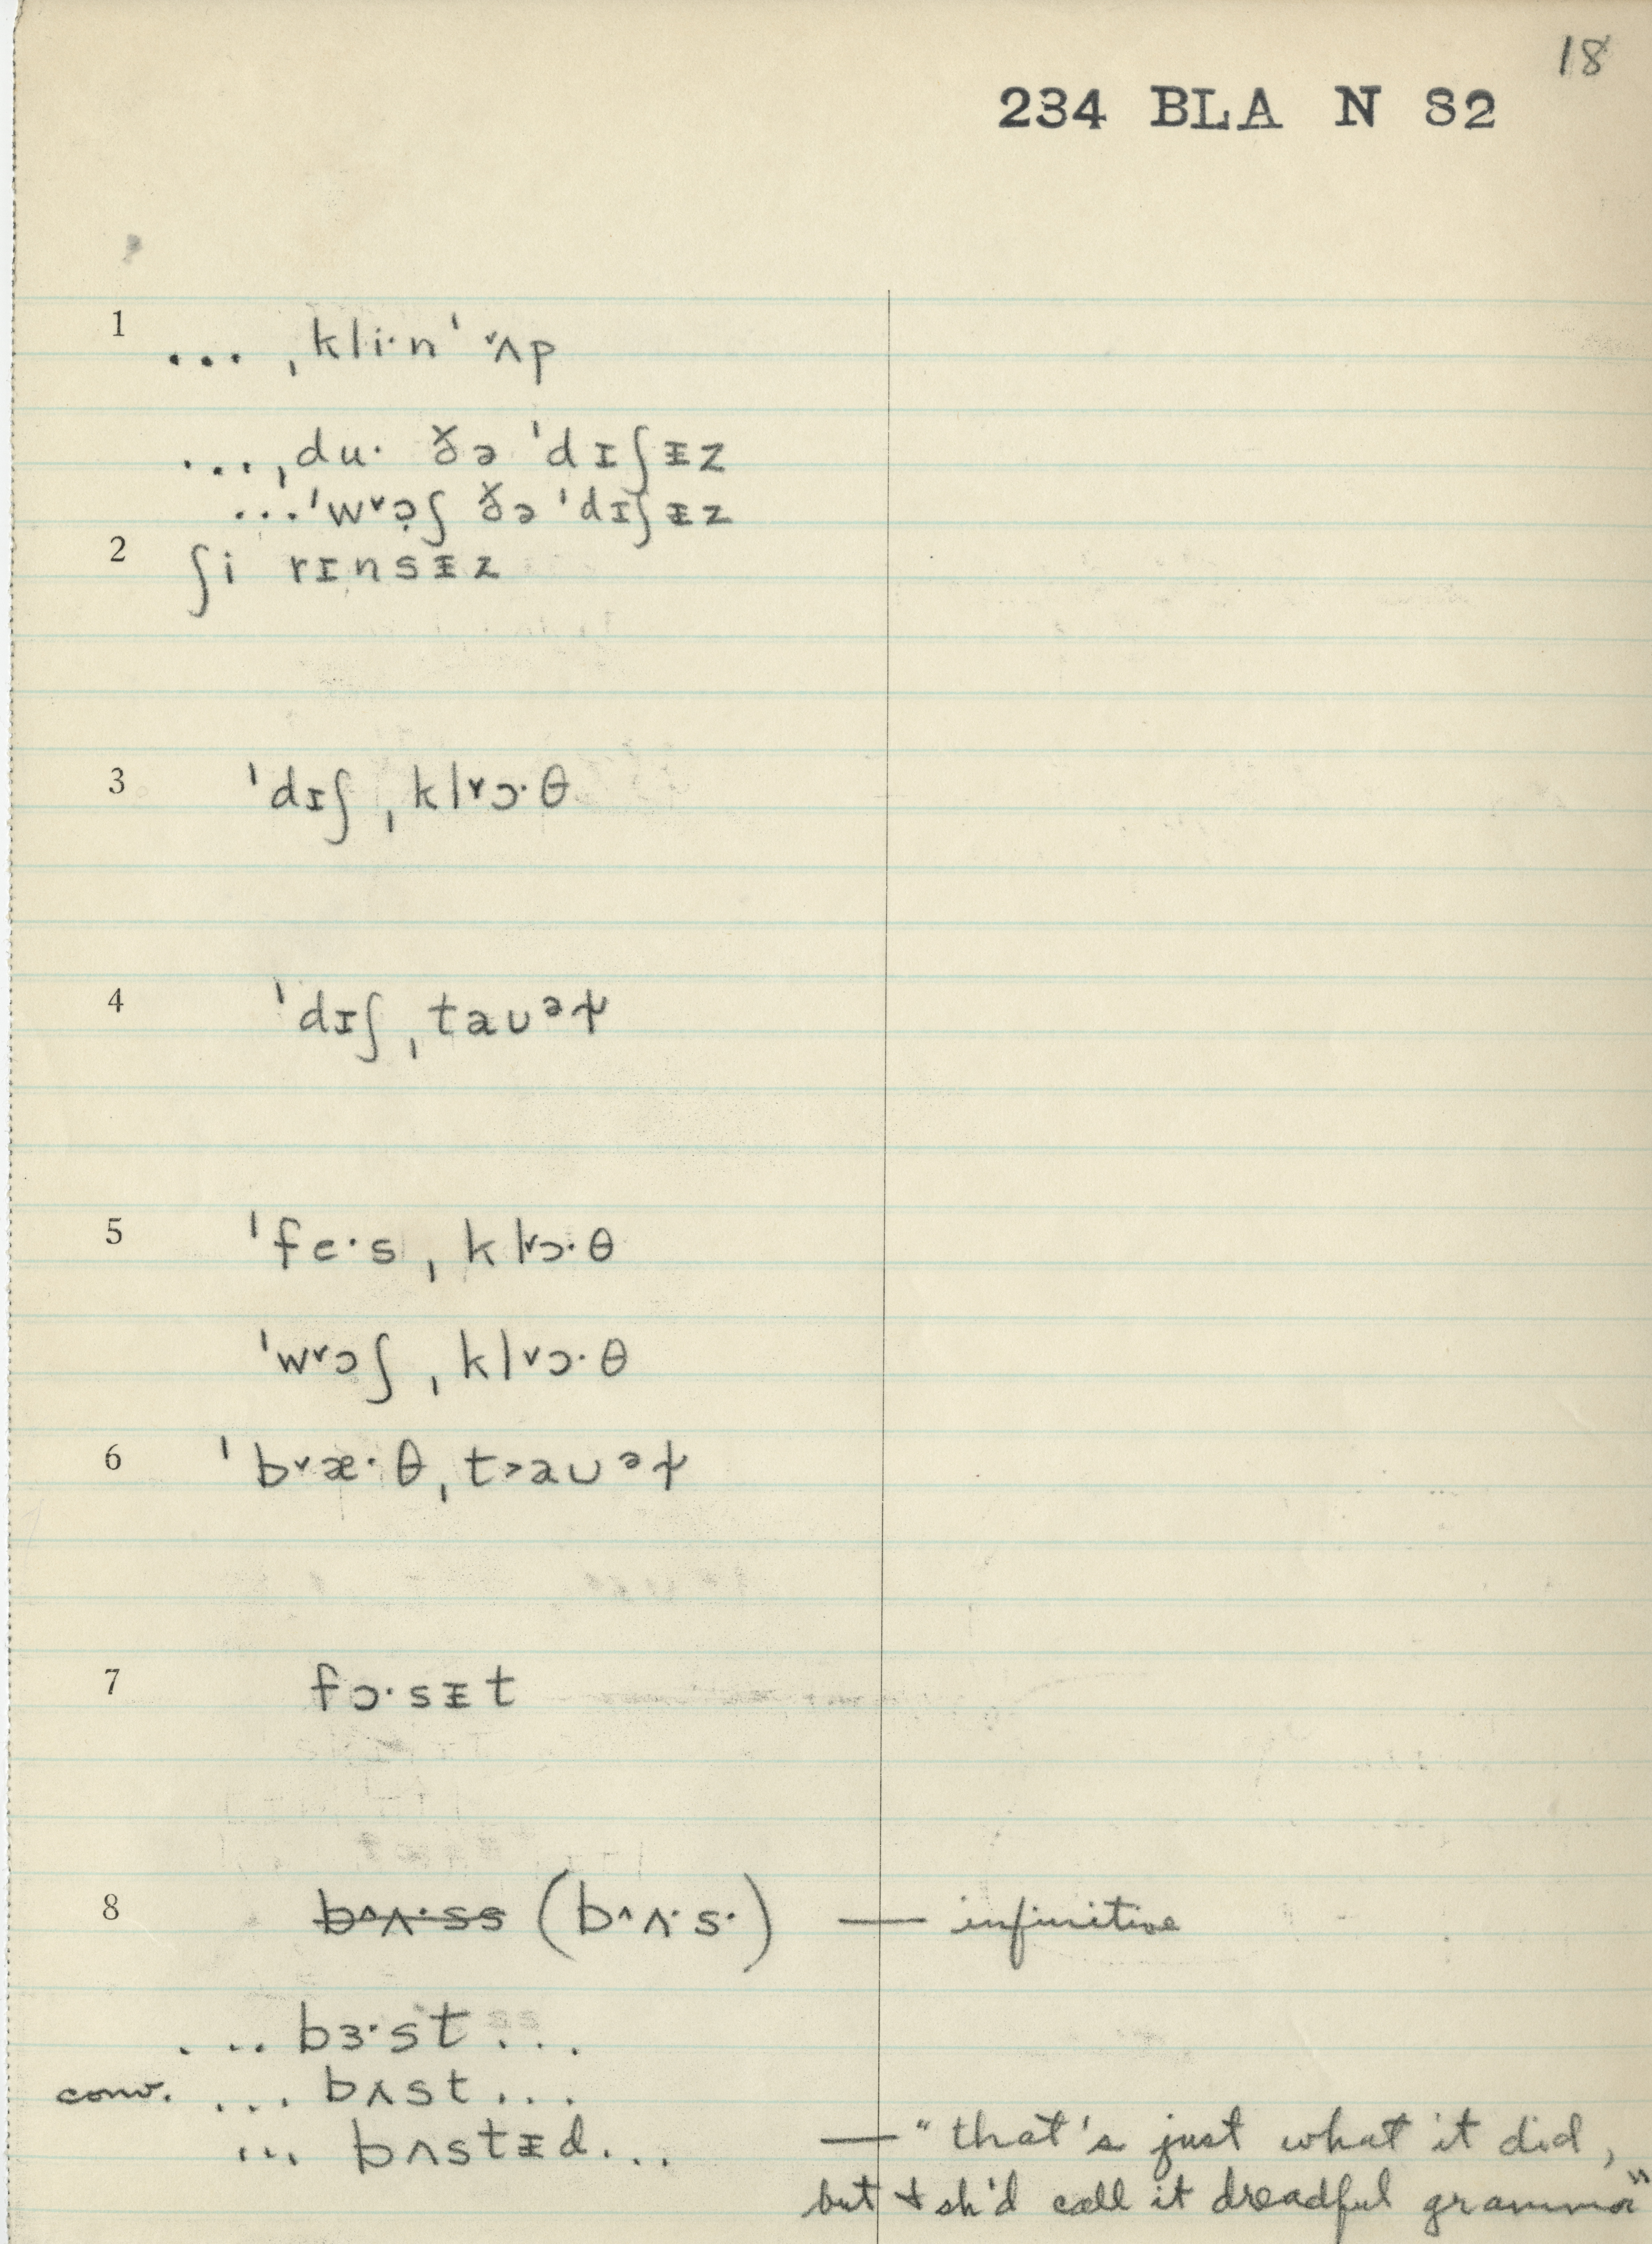 18
234 BLA N S2
1 ... ˌkli·n' ˅ʌp
...ˌdu· ðə ˈdɪʃᵻz
...ˈw˅ɔ̣ʃ ðə ˈdɪʃᵻz
2 ʃi rɪnsᵻz
3 ˈdɪʃˌkl˅ɔ·θ
4 ˈdɪʃˌtaʊᵊɫ
5 ˈfe·sˌkl˅ɔ·θ
ˈw˅ɔʃˌkl˅ɔ·θ
6 ˈb˅æ·θˌt˃aʊᵊɫ
7 fɔ·sᵻt
8 b^ʌ·ss (b^ʌ·s·) — infinitive
... bɜ·st...
conv. ... bʌst...
... bʌstᵻd... — "that's just what it did,
but I sh'd call it dreadful grammar"